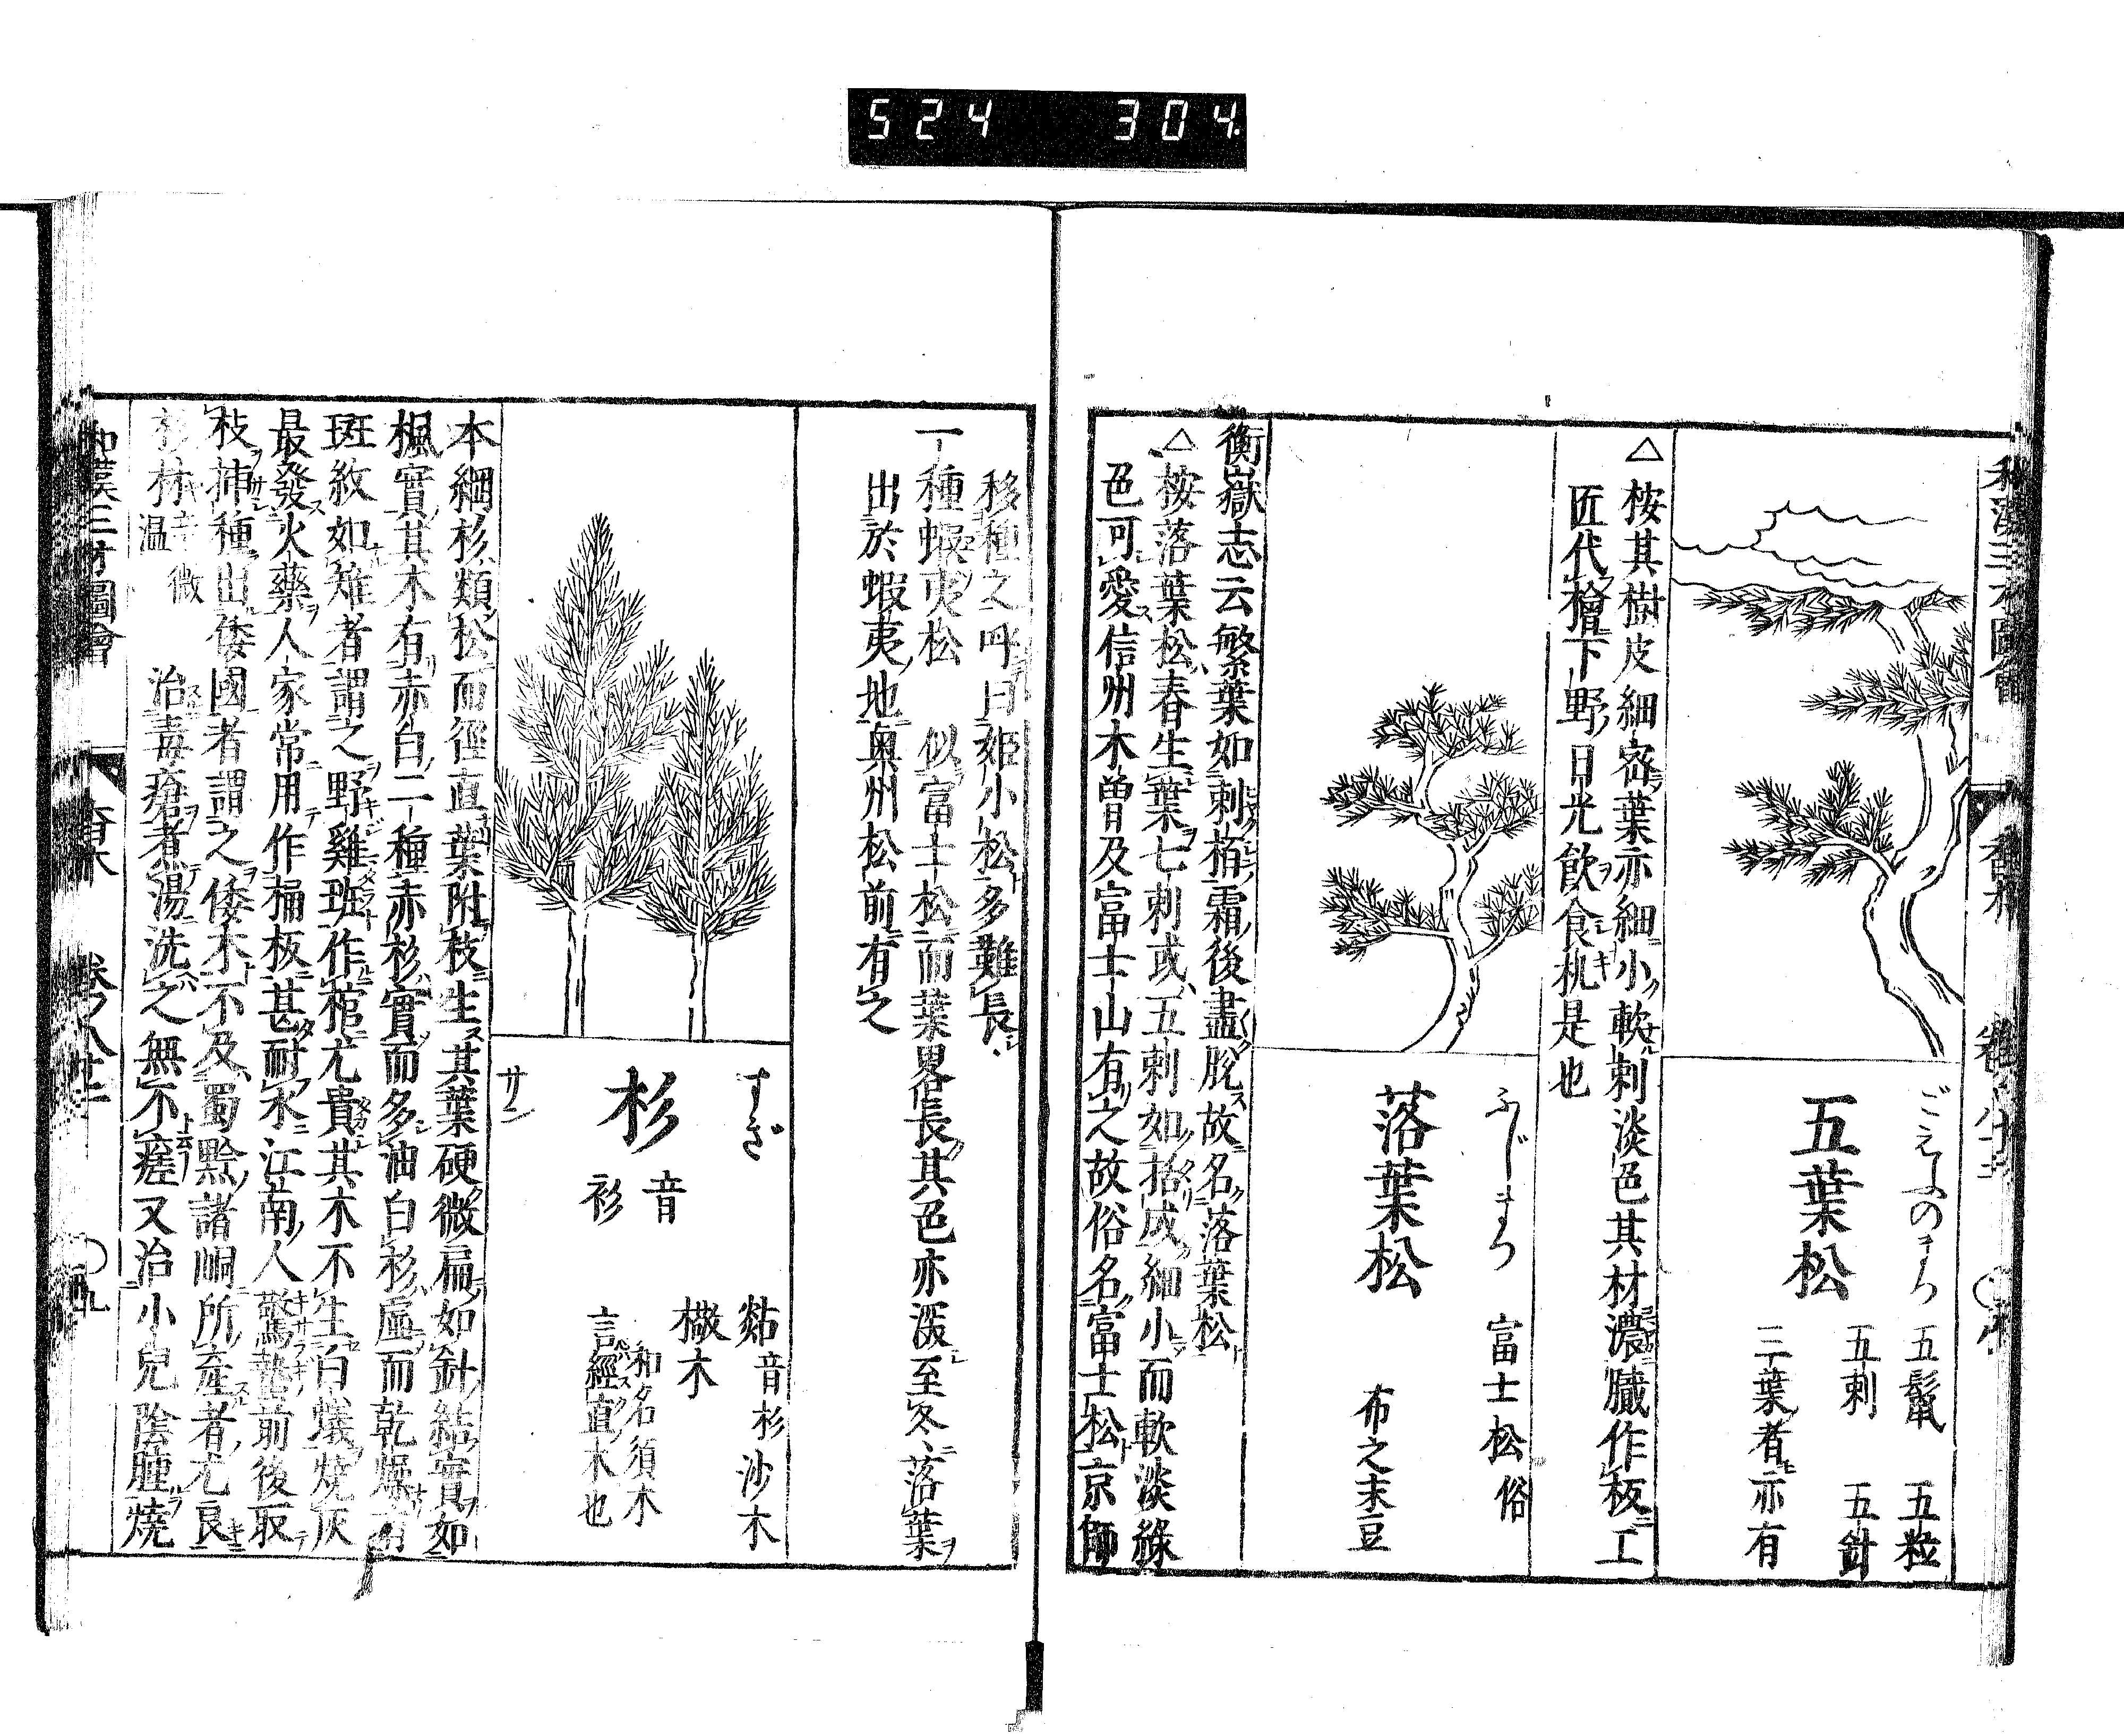 524 304.
和漢三才圖會 香木
ごえふのまつ
五葉松
五鬣 五粒
五刺 五針
三葉者亦有
△桉其樹皮細宻葉亦細小軟刺淡色其材濃臓作板工
匠代檜下野日光飲食机是也
ふじまつ
落葉松
富士松俗
布之末豆
衡嶽志云繁葉如刺栢霜後盡脫故名落葉松
△桉落葉松春生葉七刺或五刺如括成細小而軟淡綠
色可愛信州木曽及富士山有之故俗名富士松京師
移種之呼曰姫小松多難長
一種蝦夷松 似富士松而葉畧長其色亦深至冬落葉
出於蝦夷地奥州松前有之
すぎ
杉
音
衫
サン
煔音杉 沙木
檆木
和名須木
言經直木也
本綱杉類松而徑直葉附枝生其葉硬微扁如針結實如
楓實其木有赤白二種赤杉實而多油白杉虛而乾燥有
斑紋如雉者謂之野雞斑作棺尤貴其木不生白蟻燒灰
最發火藥人家常用作桶板甚耐水江南人驚蟄前後取
枝揷種出倭國者謂之倭木不及蜀黔諸峒所產者尤良
杉材辛微
温 治毒瘡煮湯洗之無不瘥又治小兒陰腫燒
和漢三才圖會 香木 卷ノ八十二